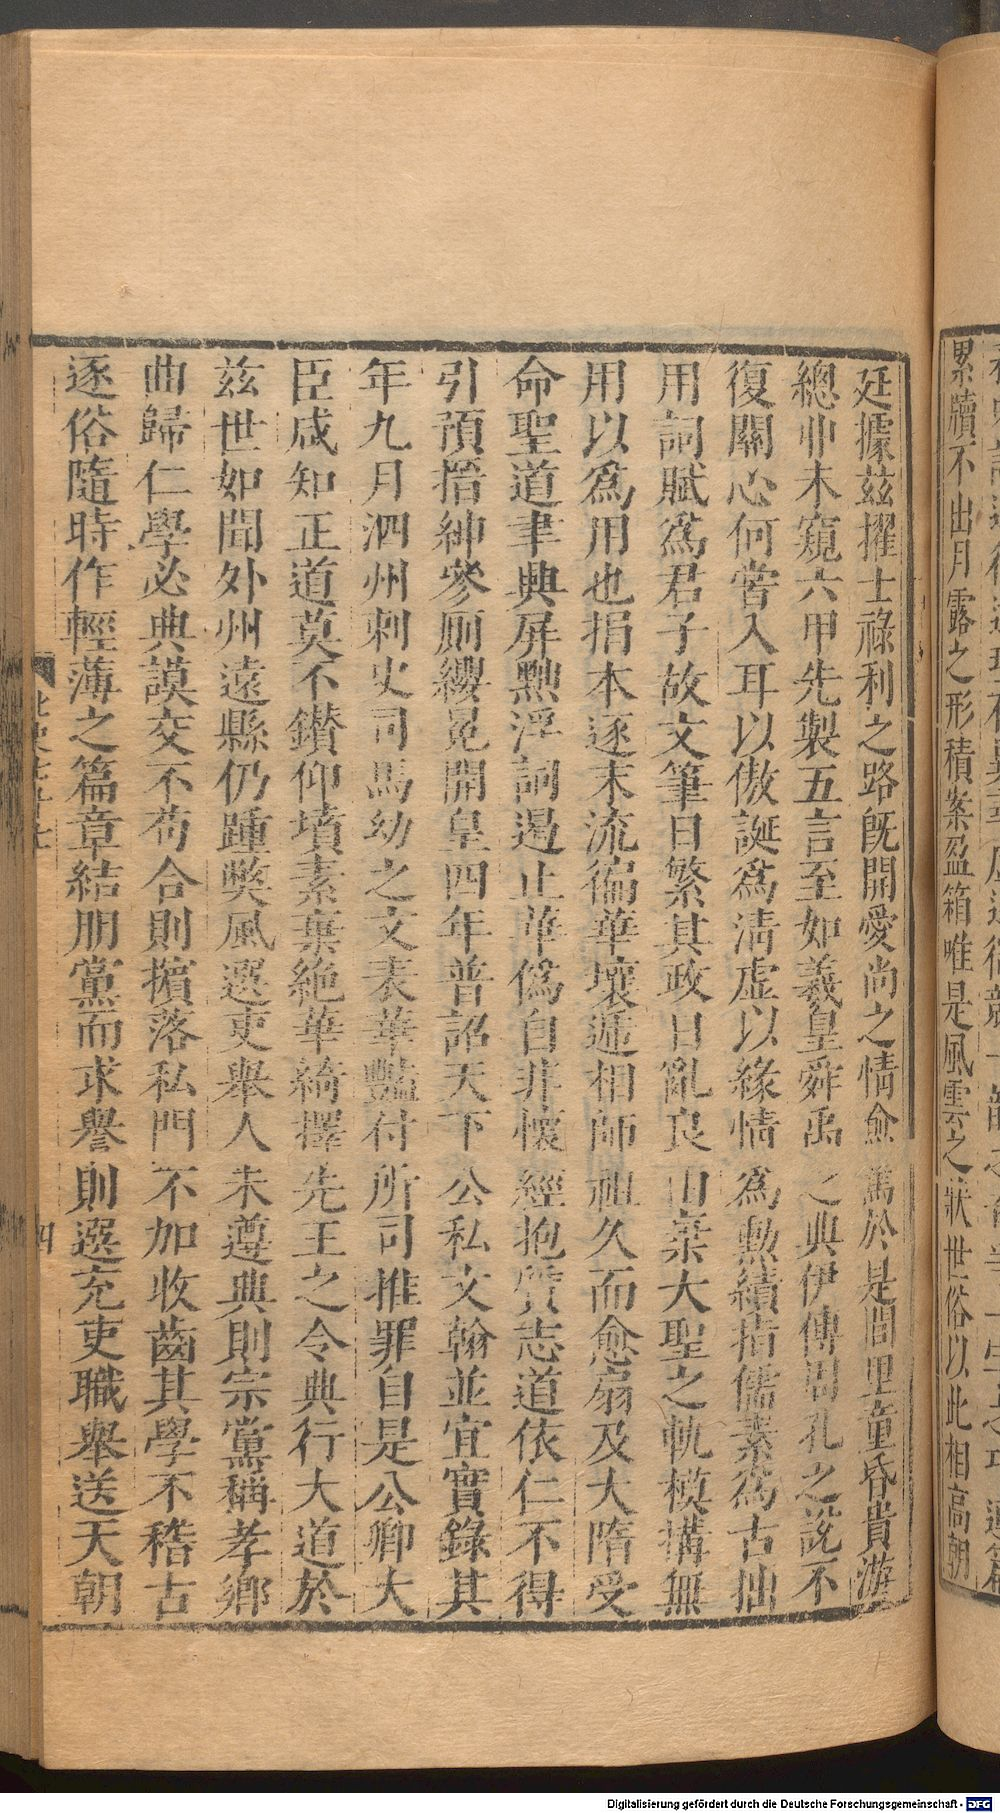 累牘不出月露之形積案盈箱唯是風雲之狀世俗以此相高朝
廷據兹擢士祿利之路旣開愛尚之情愈篤於是閭里童昏貴游
總丱未窺六甲先製五言至如羲皇舜禹之典伊傅周孔之說不
復關心何嘗入耳以傲誕爲清虛以緣情爲勲績指儒素爲古拙
用詞賦爲君子故文筆日繁其政日亂良由棄大聖之軌模搆無
用以爲用也捐本逐末流徧華壤遞相師祖久而愈扇及大隋受
命聖道聿典屏黜浮詞遏止華僞自非懷經抱質志道依仁不得
引預搢紳參厠纓冕開皇四年普詔天下公私文翰並宜實錄其
年九月泗州刺史司馬幼之文表華豔付所司推罪自是公卿大
臣咸知正道莫不鑚仰墳素棄絶華綺擇先王之令典行大道於
兹世如聞外州遠縣仍踵獘風選吏舉人未遵典則宗黨稱孝鄉
曲歸仁學必典謨交不苟合則擯落私門不加收齒其學不稽古
逐俗隨時作輕薄之篇章結朋黨而求譽則選充吏職舉送天朝
北史七十七
四
Digitalisierung gefördert durch die Deutsche Forschungsgemeinschaft - DFG